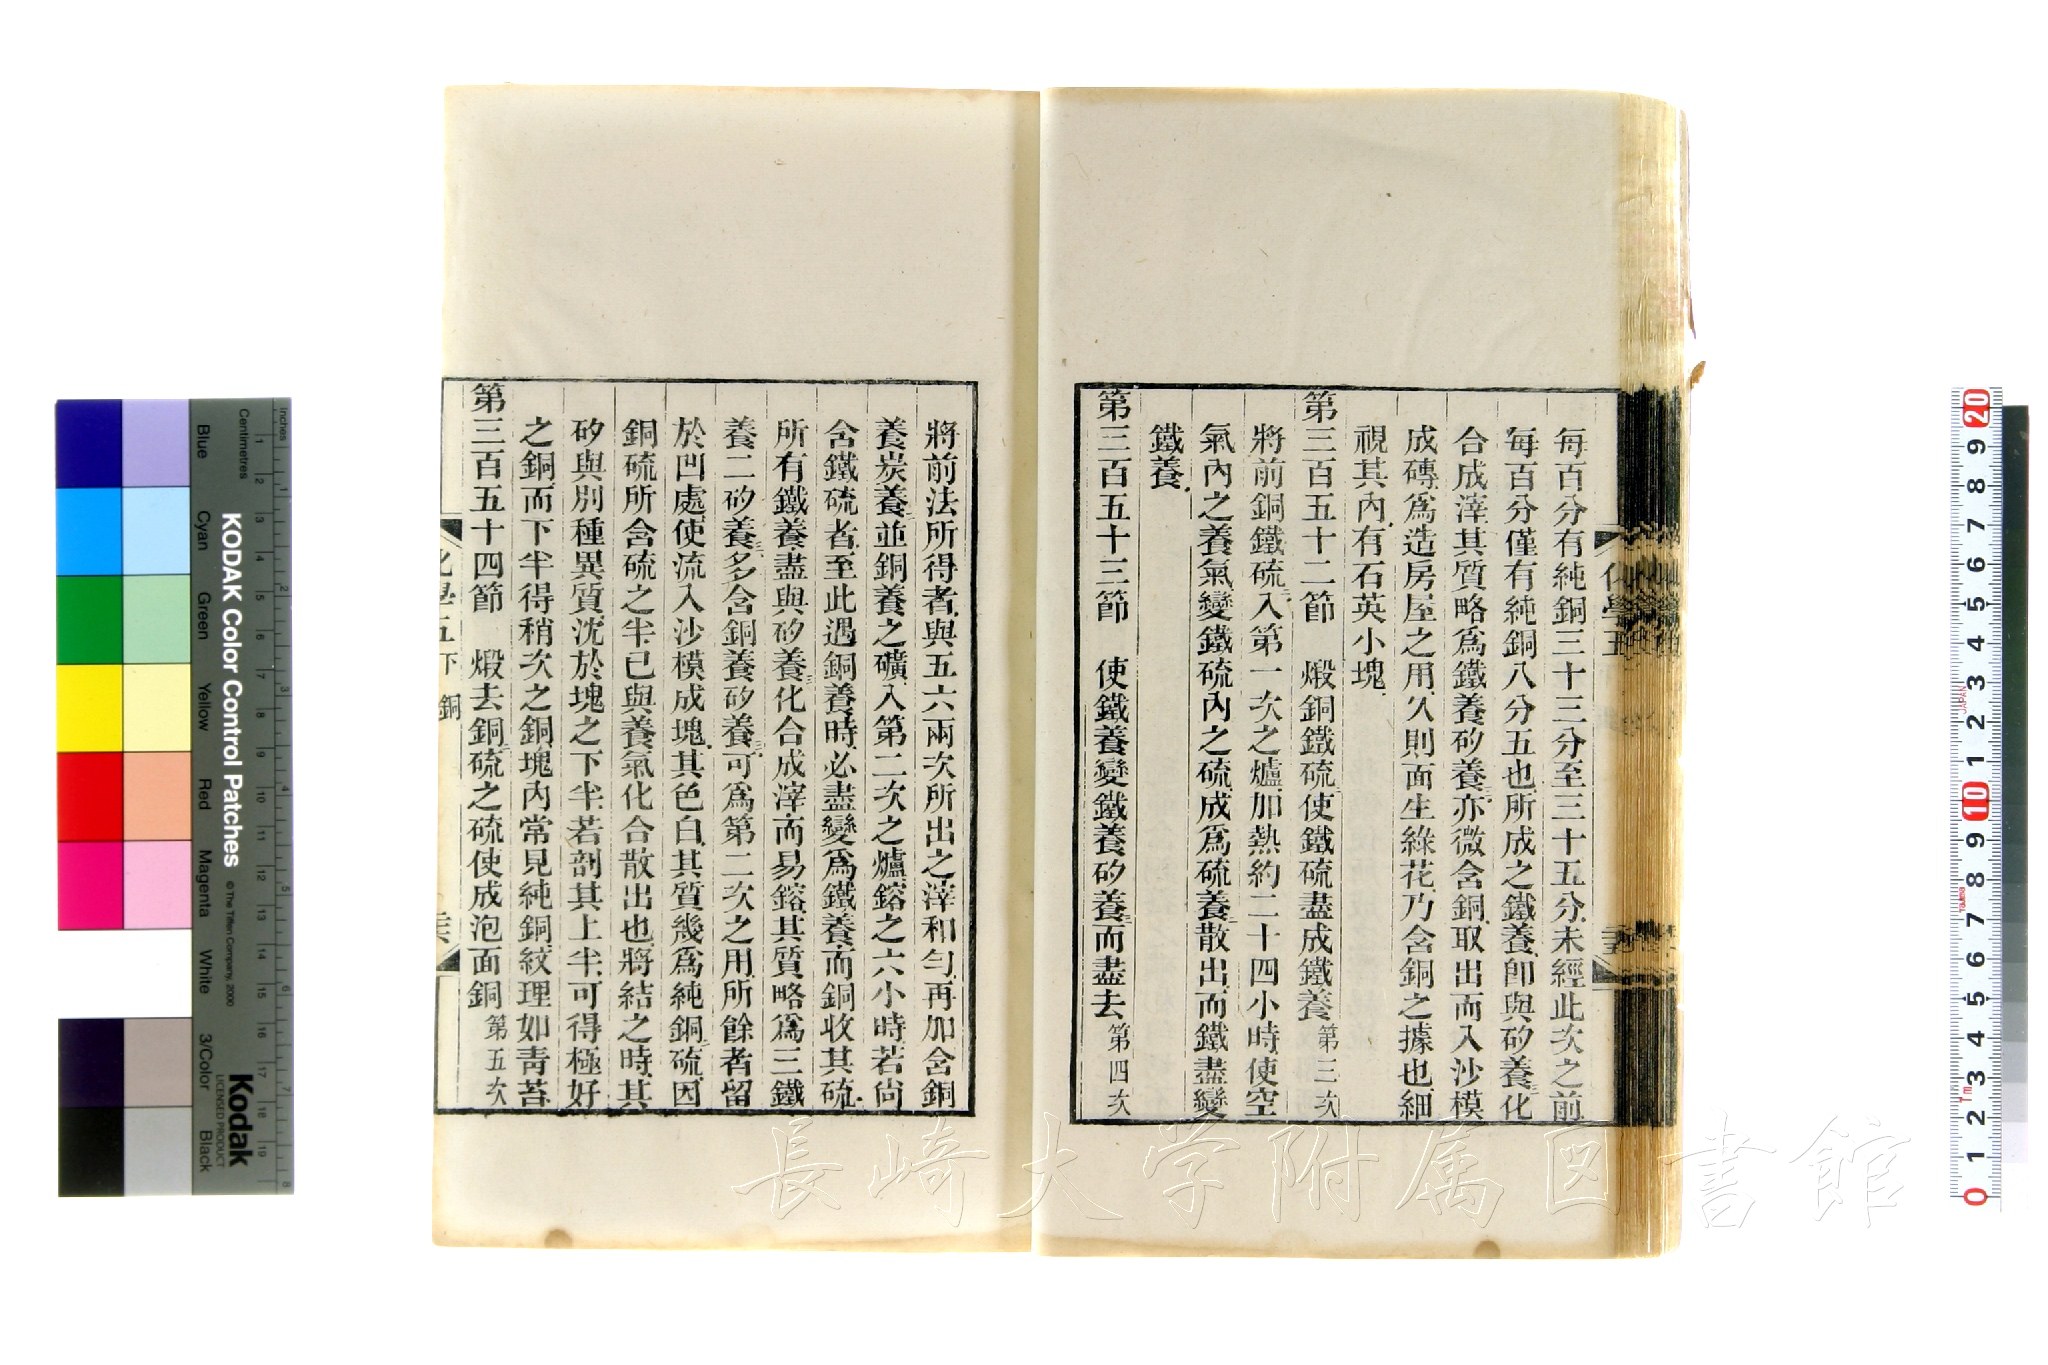 每百分有純銅三十三分至三十五分未經此次之前
每百分僅有純銅八分五也所成之鐵養卽與矽養三化
合成滓其質略爲鐵養矽養三亦微含銅取出而入沙模
成磚爲造房屋之用久則面生綠花乃含銅之據也細
視其內有石英小塊
第三百五十二節　煅銅鐵硫使鐵硫盡成鐵養第三次
將前銅鐵硫二入第一次之爐加熱約二十四小時使空
氣內之養氣變鐵硫內之硫成爲硫養二散出而鐵盡變
鐵養
第三百五十三節　使鐵養變鐵養矽養三而盡去第四次
將前法所得者與五六兩次所出之滓和勻再加含銅
養炭養二並銅養之礦入第二次之爐鎔之六小時若尙
含鐵硫者至此遇銅養時必盡變爲鐵養而銅收其硫
所有鐵養盡與矽養三化合成滓而易鎔其質略爲三鐵
養二矽養三多含銅養矽養三可爲第二次之用所餘者留
於凹處使流入沙模成塊其色白其質幾爲純銅二硫因
銅硫所含硫之半已與養氣化合散出也將結之時其
矽與別種異質沈於塊之下半若剖其上半可得極好
之銅而下半得稍次之銅塊內常見純銅紋理如靑苔
第三百五十四節　煅去銅二硫之硫使成泡面銅第五次
化學五下　銅
化學五
KODAK Color Control Patches
© The Tiffen Company, 2000
Kodak
LICENSED PRODUCT
Blue Cyan Green Yellow Red Magenta White 3/Color Black
Inches
Centimetres
1 2 3 4 5 6 7 8
1 2 3 4 5 6 7 8 9 10 11 12 13 14 15 16 17 18 19
20 9 8 7 6 5 4 3 2 1 10 9 8 7 6 5 4 3 2 1 0
JAPAN
長崎大学附属図書館